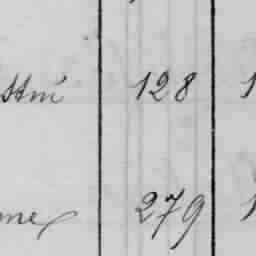 stní 128 1
me 279 1